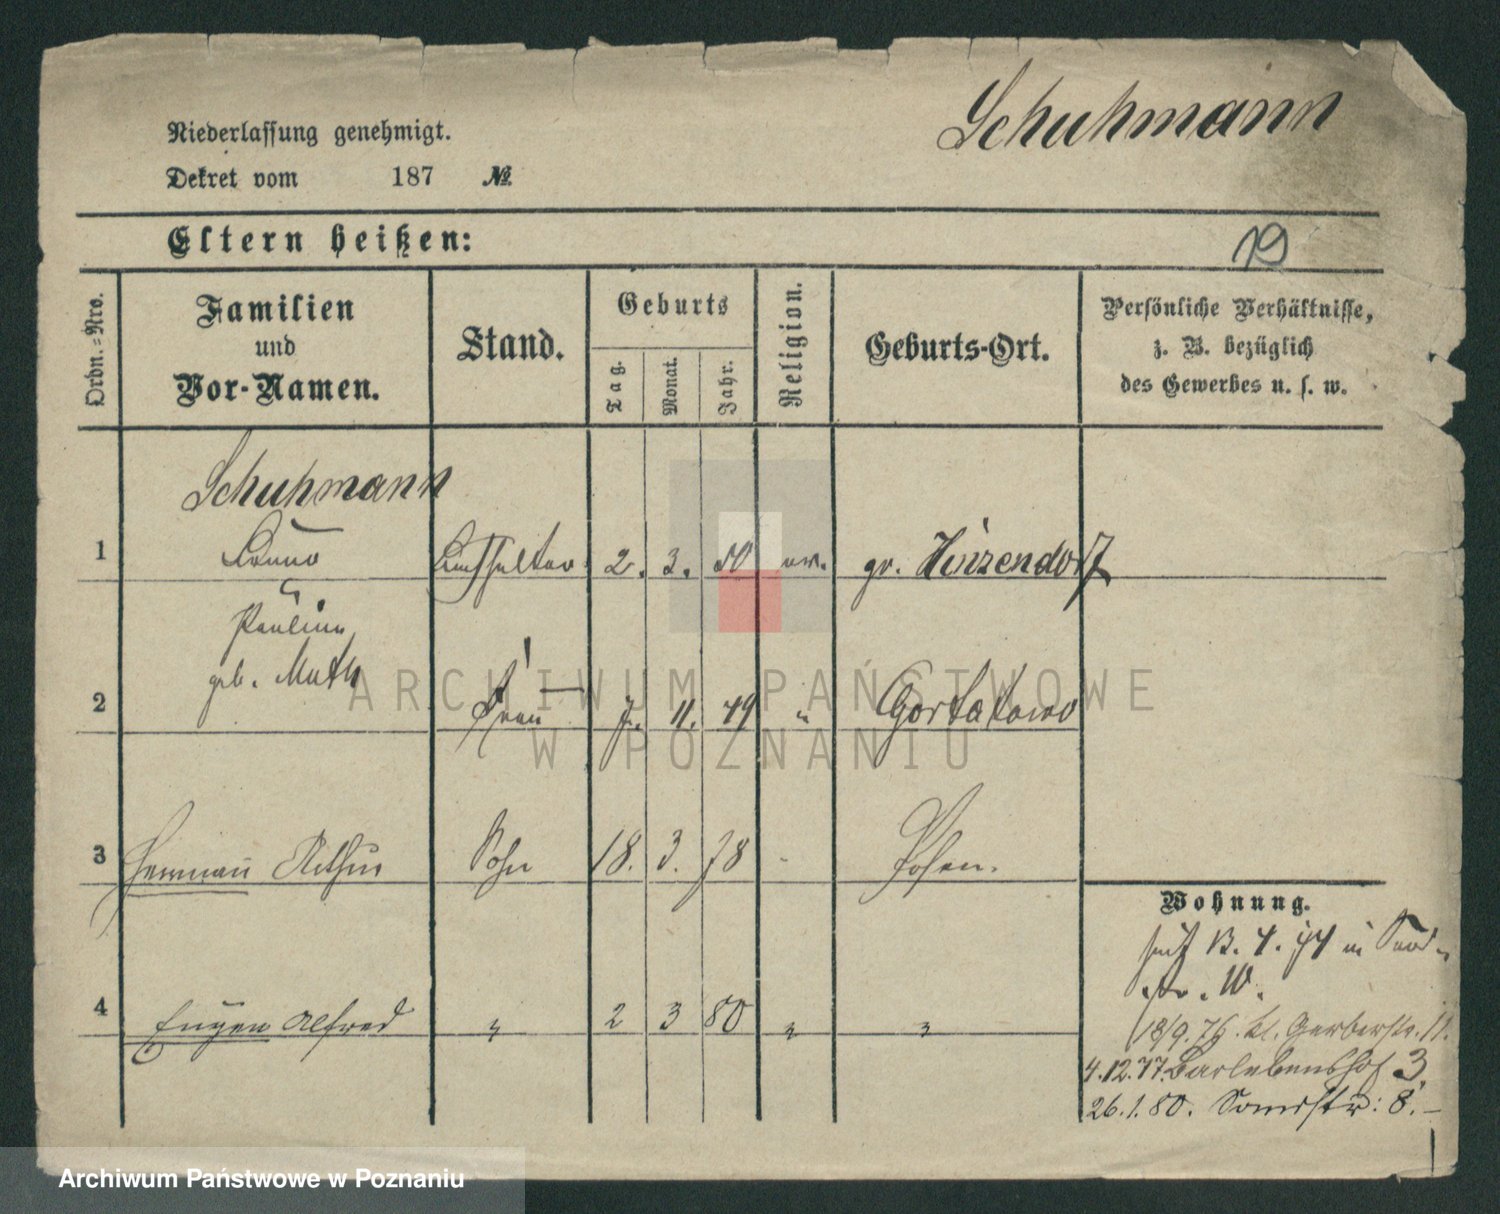 Schuhmann
Niederlassung genehmigt.
Dekret vom 187 №
Eltern heißen:
19
Ordn.=Nro.
Familien
und
Vor-Namen.
Stand.
Geburts
Tag.
Monat.
Jahr.
Religion.
Geburts-Ort.
Persönliche Verhältnisse,
z. B. bezüglich
des Gewerbes u. s. w.
Schuhmann
1 Bruno Buchhalter 2. 3. 50 ev. gr. Hinzendorf
Pauline
geb. Muth
2 Frau 7. 11. 49 " Gortatowo
3 Herrmann Arthur Sohn 18. 3. 78 - Posen.
4 Eugen Alfred " 2 3 80 " "
Wohnung.
seit 13. 4. 74 in
str. W.
18/9. 76. kl. Gerberstr. 11.
4.12.77. Barlebenshof 3.
26.1.80. 8.
ARCHIWUM PAŃSTWOWE
W POZNANIU
Archiwum Państwowe w Poznaniu